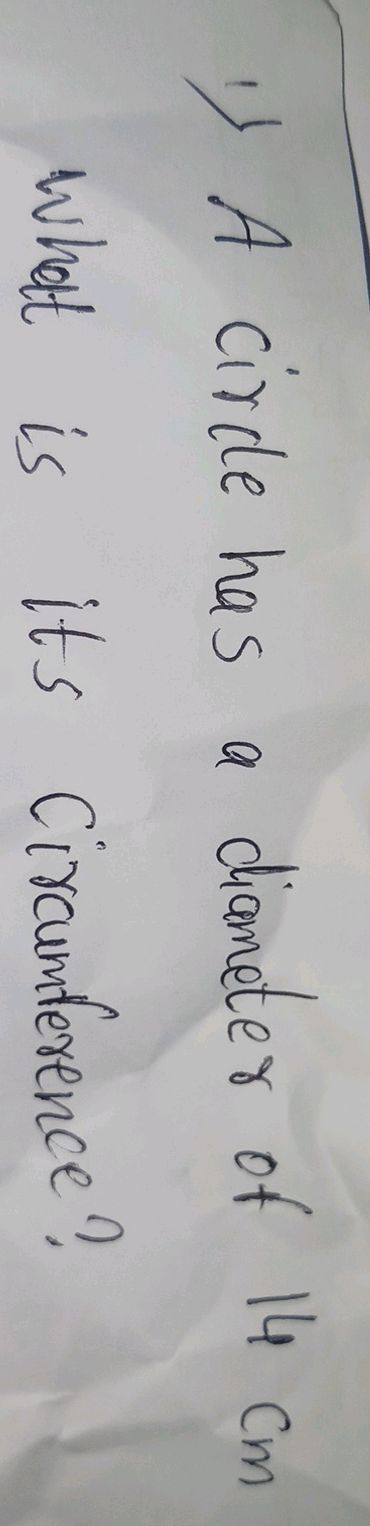 1) A circle has a diameter of 14 cm
what is its circumference?